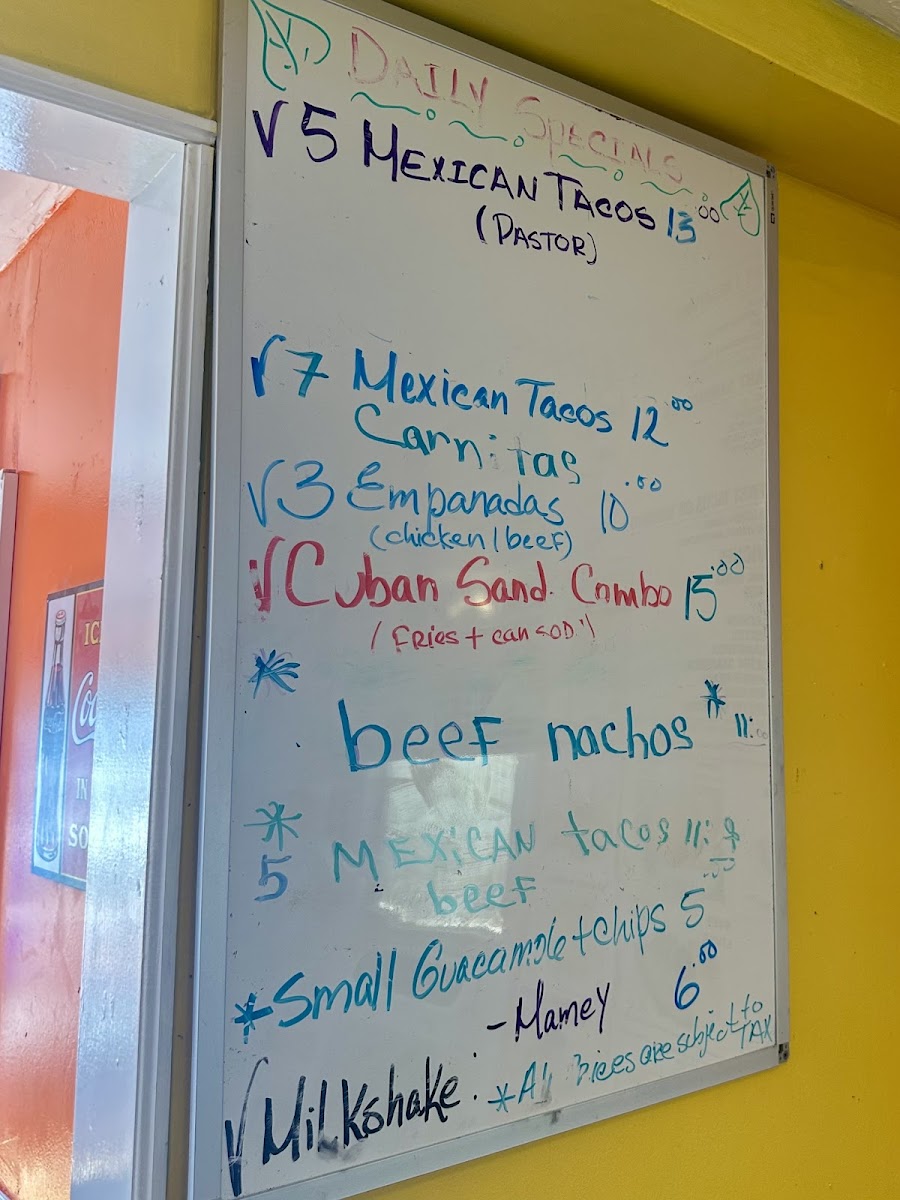 DAILY SPECIALS
√ 5 MEXICAN TACOS 13.00
(PASTOR)
√ 7 Mexican Tacos 12.00
Carnitas
√ 3 Empanadas 10.00
(chicken/beef)
√ Cuban Sand. Combo 15.00
(FRies + can SOD.')
*
beef nachos * 11:00
*
5 MEXiCAN tacos 11:
beef
*Small Guacamole + Chips 5.00
-Mamey 6.00
√ Milkshake:
*All Prices are subject to
TAX
ICE
Coc
IN
SO